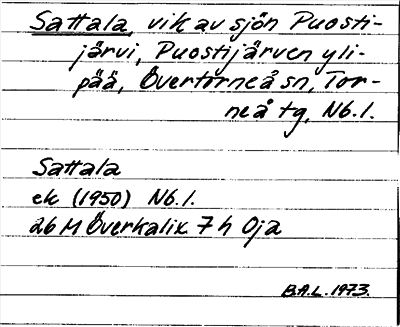 Sattala, vik av sjön Puosti-
järvi, Puostijärven yli-
pää, Övertorneå sn, Tor-
neå tg, Nb.l.
Sattala
ek (1950) Nb.l.
26 M Överkalix 7 h Oja
B.A.L. 1973.